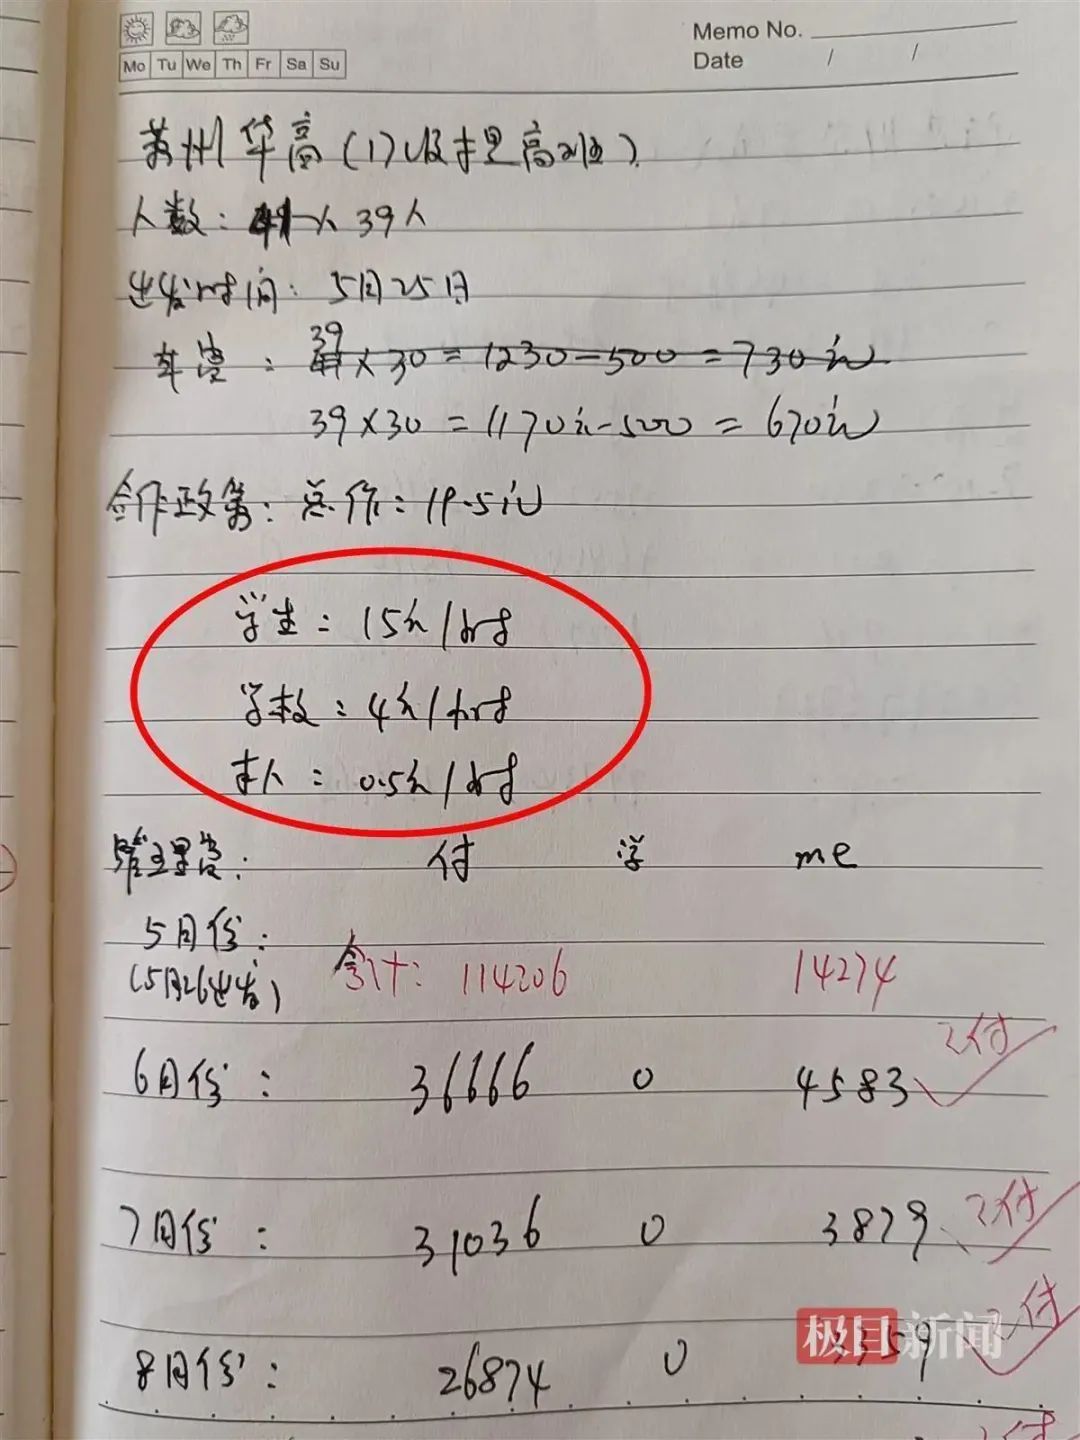 Memo No.
Mo Tu We Th Fr Sa Su
Date / /
苏州华高(17级提高班)
人数: 41人 39人
出发时间: 5月25日
39
车费: 41×30=1230-500=730元
39×30=1170元-500=670元
合作政策: 总价: 19.5元
学生: 15元/时
学校: 4元/时
本人: 0.5元/时
管理费: 付 学 me
5月份:
(5月26出发) 合计: 114206 14274
6月份: 36666 0 4583 已付
7月份: 31036 0 3879 已付
8月份: 26874 0 3359 已付
极目新闻
已付